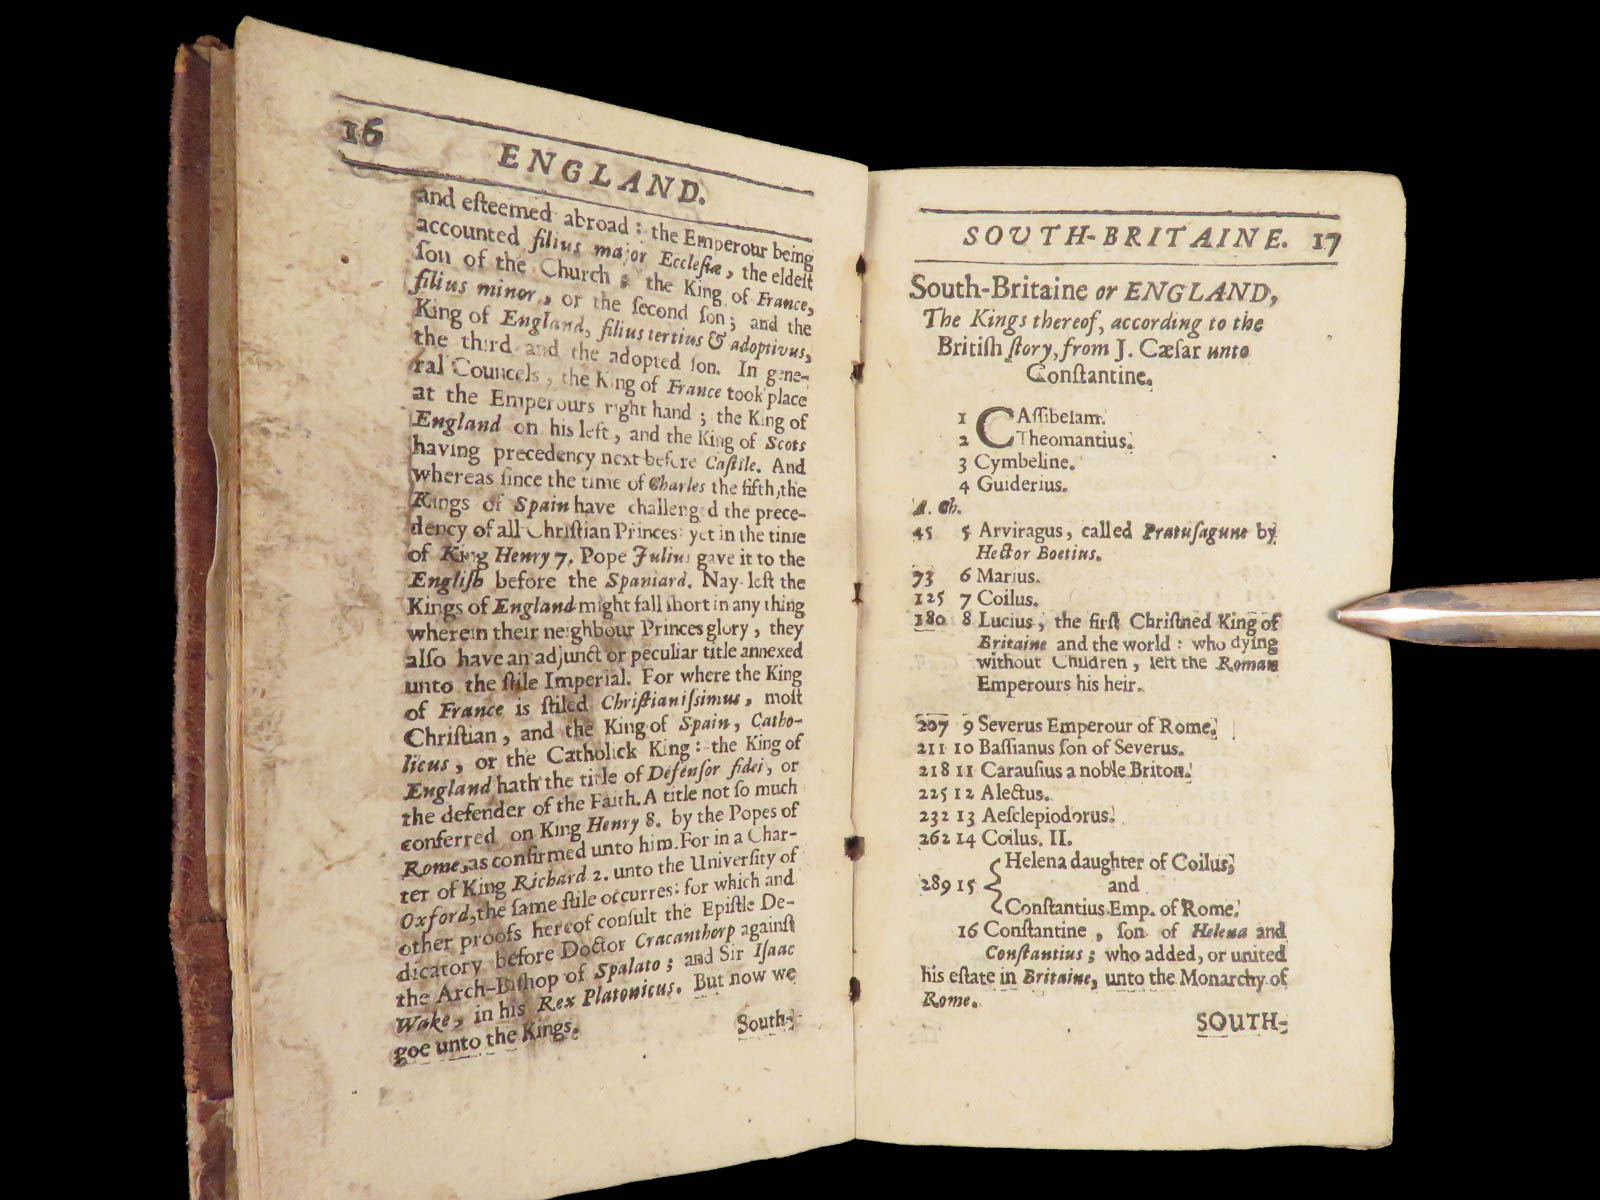 16
ENGLAND.
and eſteemed abroad : the Emperour being
accounted filius major Eccleſiæ, the eldeſt
ſon of the Church ; the King of France,
filius minor, or the ſecond ſon; and the
King of England, filius tertius & adoptivus,
the third and the adopted ſon. In gene-
ral Councels, the King of France took place
at the Emperours right hand ; the King of
England on his left, and the King of Scots
having precedency next before Caſtile. And
whereas ſince the time of Charles the fifth, the
Kings of Spain have challenged the prece-
dency of all Chriſtian Princes: yet in the time
of King Henry 7. Pope Julius gave it to the
Engliſh before the Spaniard. Nay left the
Kings of England might fall ſhort in any thing
wherein their neighbour Princes glory, they
alſo have an adjunct or peculiar title annexed
unto the ſtile Imperial. For where the King
of France is ſtiled Chriſtianiſsimus, moſt
Chriſtian, and the King of Spain, Catho-
licus, or the Catholick King: the King of
England hath the title of Defenſor fidei, or
the defender of the Faith. A title not ſo much
conferred on King Henry 8. by the Popes of
Rome, as confirmed unto him. For in a Char-
ter of King Richard 2. unto the Univerſity of
Oxford, the ſame ſtile occurres: for which and
other proofs hereof conſult the Epiſtle De-
dicatory before Doctor Cracanthorp againſt
the Arch-Biſhop of Spalato ; and Sir Iſaac
Wake, in his Rex Platonicus. But now we
goe unto the Kings.
South-
SOUTH-BRITAINE. 17
South-Britaine or ENGLAND,
The Kings thereof, according to the
Britiſh ſtory, from J. Cæſar unto
Conſtantine.
1 CAſſibelam.
2 Theomantius.
3 Cymbeline.
4 Guiderius.
A. Ch.
45 5 Arviragus, called Pratuſagune by
Hector Boetius.
73 6 Marius.
125 7 Coilus.
180 8 Lucius, the firſt Chriſtned King of
Britaine and the world : who dying
without Children, left the Roman
Emperours his heir.
207 9 Severus Emperour of Rome.
211 10 Baſſianus ſon of Severus.
218 11 Carauſius a noble Briton.
225 12 Alectus.
232 13 Aeſclepiodorus.
262 14 Coilus. II.
Helena daughter of Coilus,
289 15 and
Conſtantius Emp. of Rome.
16 Conſtantine, ſon of Helena and
Conſtantius ; who added, or united
his eſtate in Britaine, unto the Monarchy of
Rome.
SOUTH-